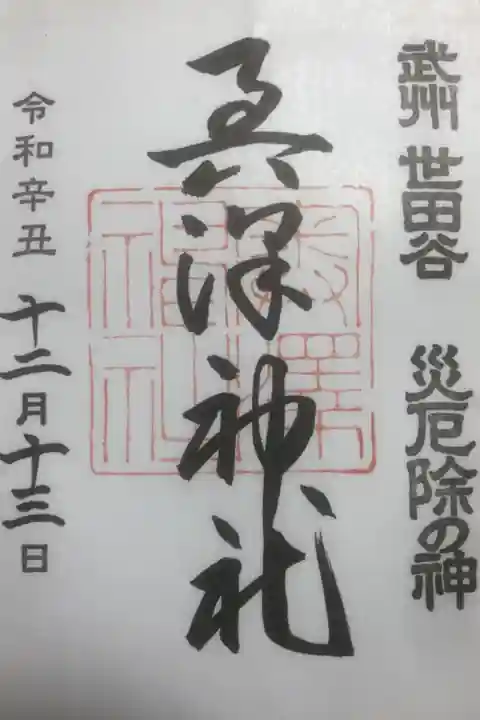 武州 世田谷 災厄除の神
奥澤神社
奥澤
神社
令和辛丑 十二月十三日